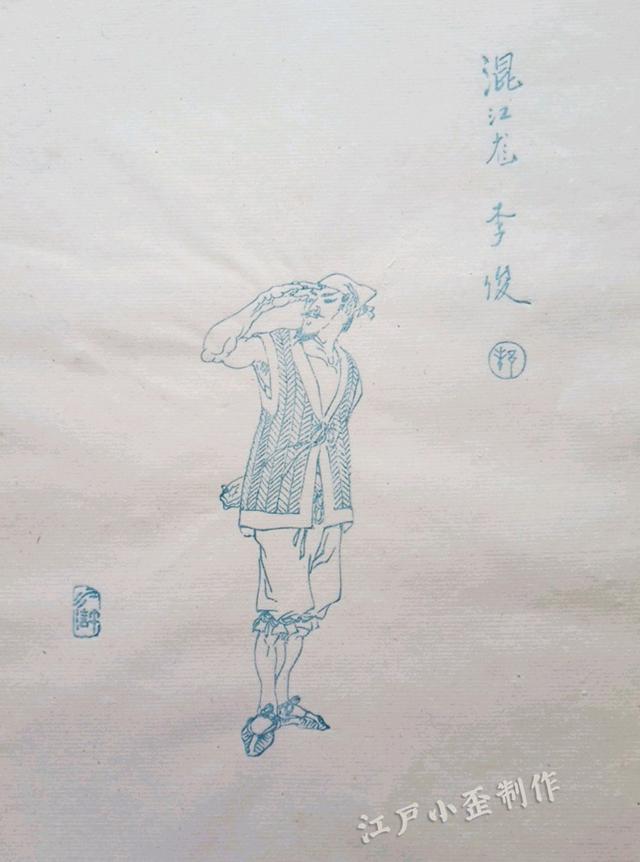 混江龙 李俊
水浒
江户小歪制作